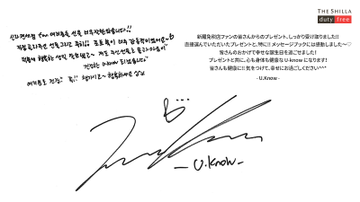 THE SHILLA
duty free
신라면세점 fan 여러분들 선물 너무 잘 받았습니다!!
직접 골라주신 선물 그리고 특히!! 포토북이 너무 감동적이었어요~
덕분에 행복한 생일 보냈네요~
건강한 U-know 되겠습니다^^
여러분도 건강 꼭!! 챙기시고 행복하세요
新羅免税店ファンの皆さんからのプレゼント、しっかり受け取りました!!
直接選んでいただいたプレゼントと、特に!! メッセージブックには感動しました~♡
皆さんのおかげで幸せな誕生日を過ごせました!
プレゼントと共に、心も身体も健康な U-know になります!
皆さんも健康にに気をつけて、幸せにお過ごしください^^^
- U.Know -
- U.Know -